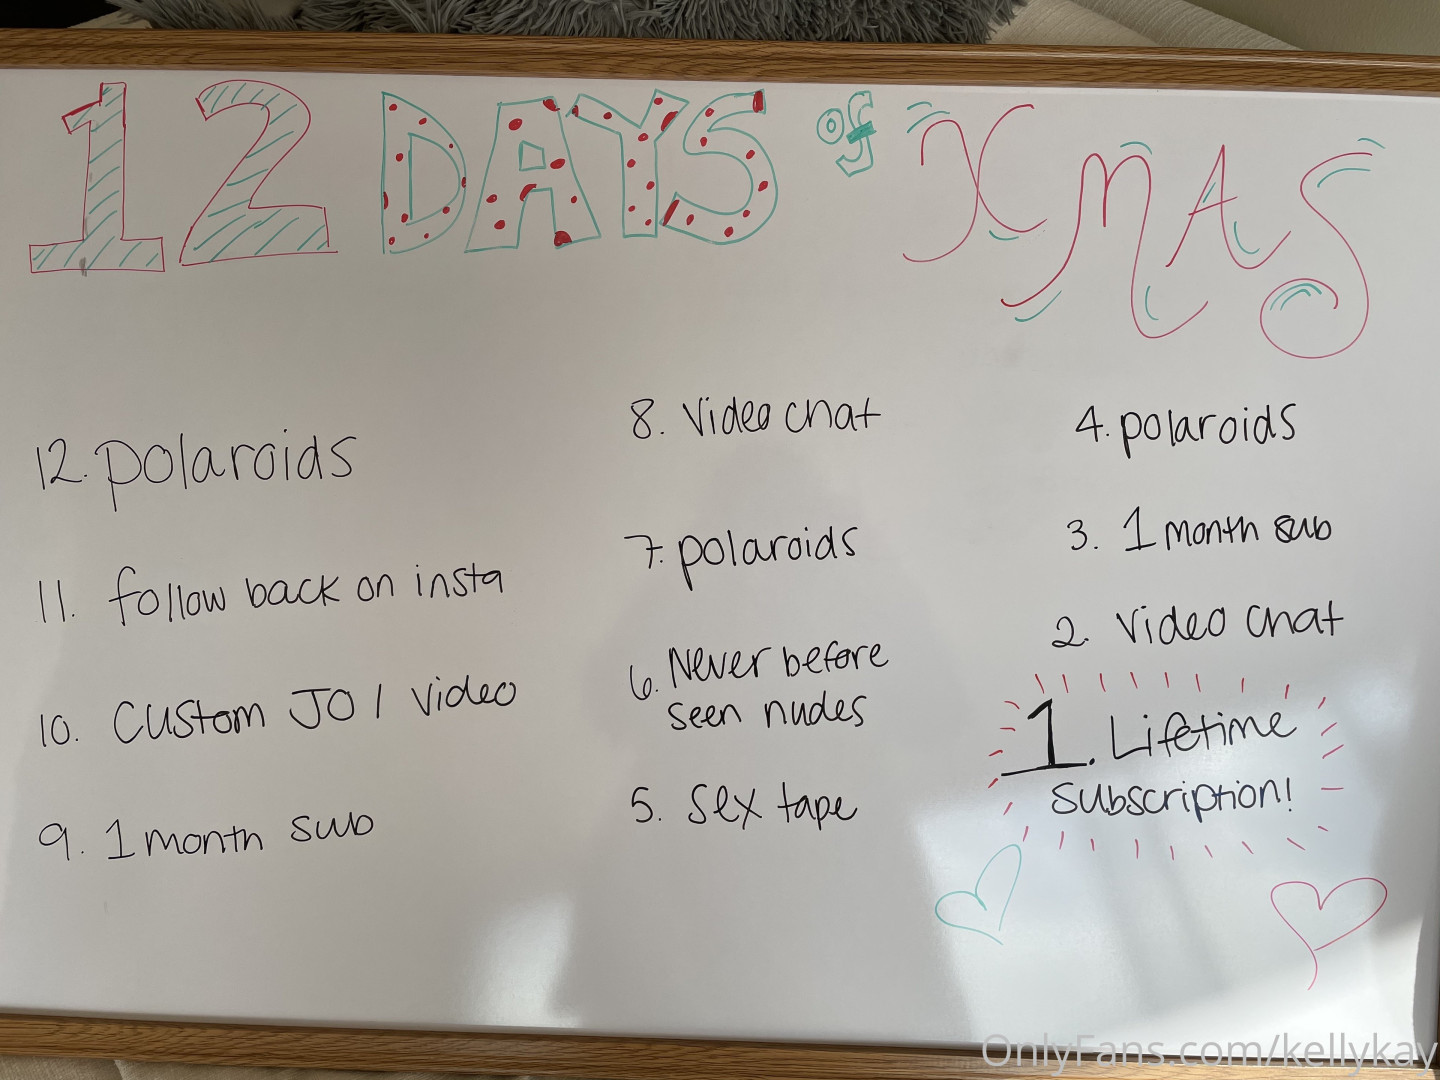 12 DAYS of XMAS
12. polaroids
11. follow back on insta
10. Custom JOI video
9. 1 month sub
8. Video chat
7. polaroids
6. Never before
seen nudes
5. sex tape
4. polaroids
3. 1 month sub
2. Video chat
1. Lifetime
subscription!
OnlyFans.com/kellykay